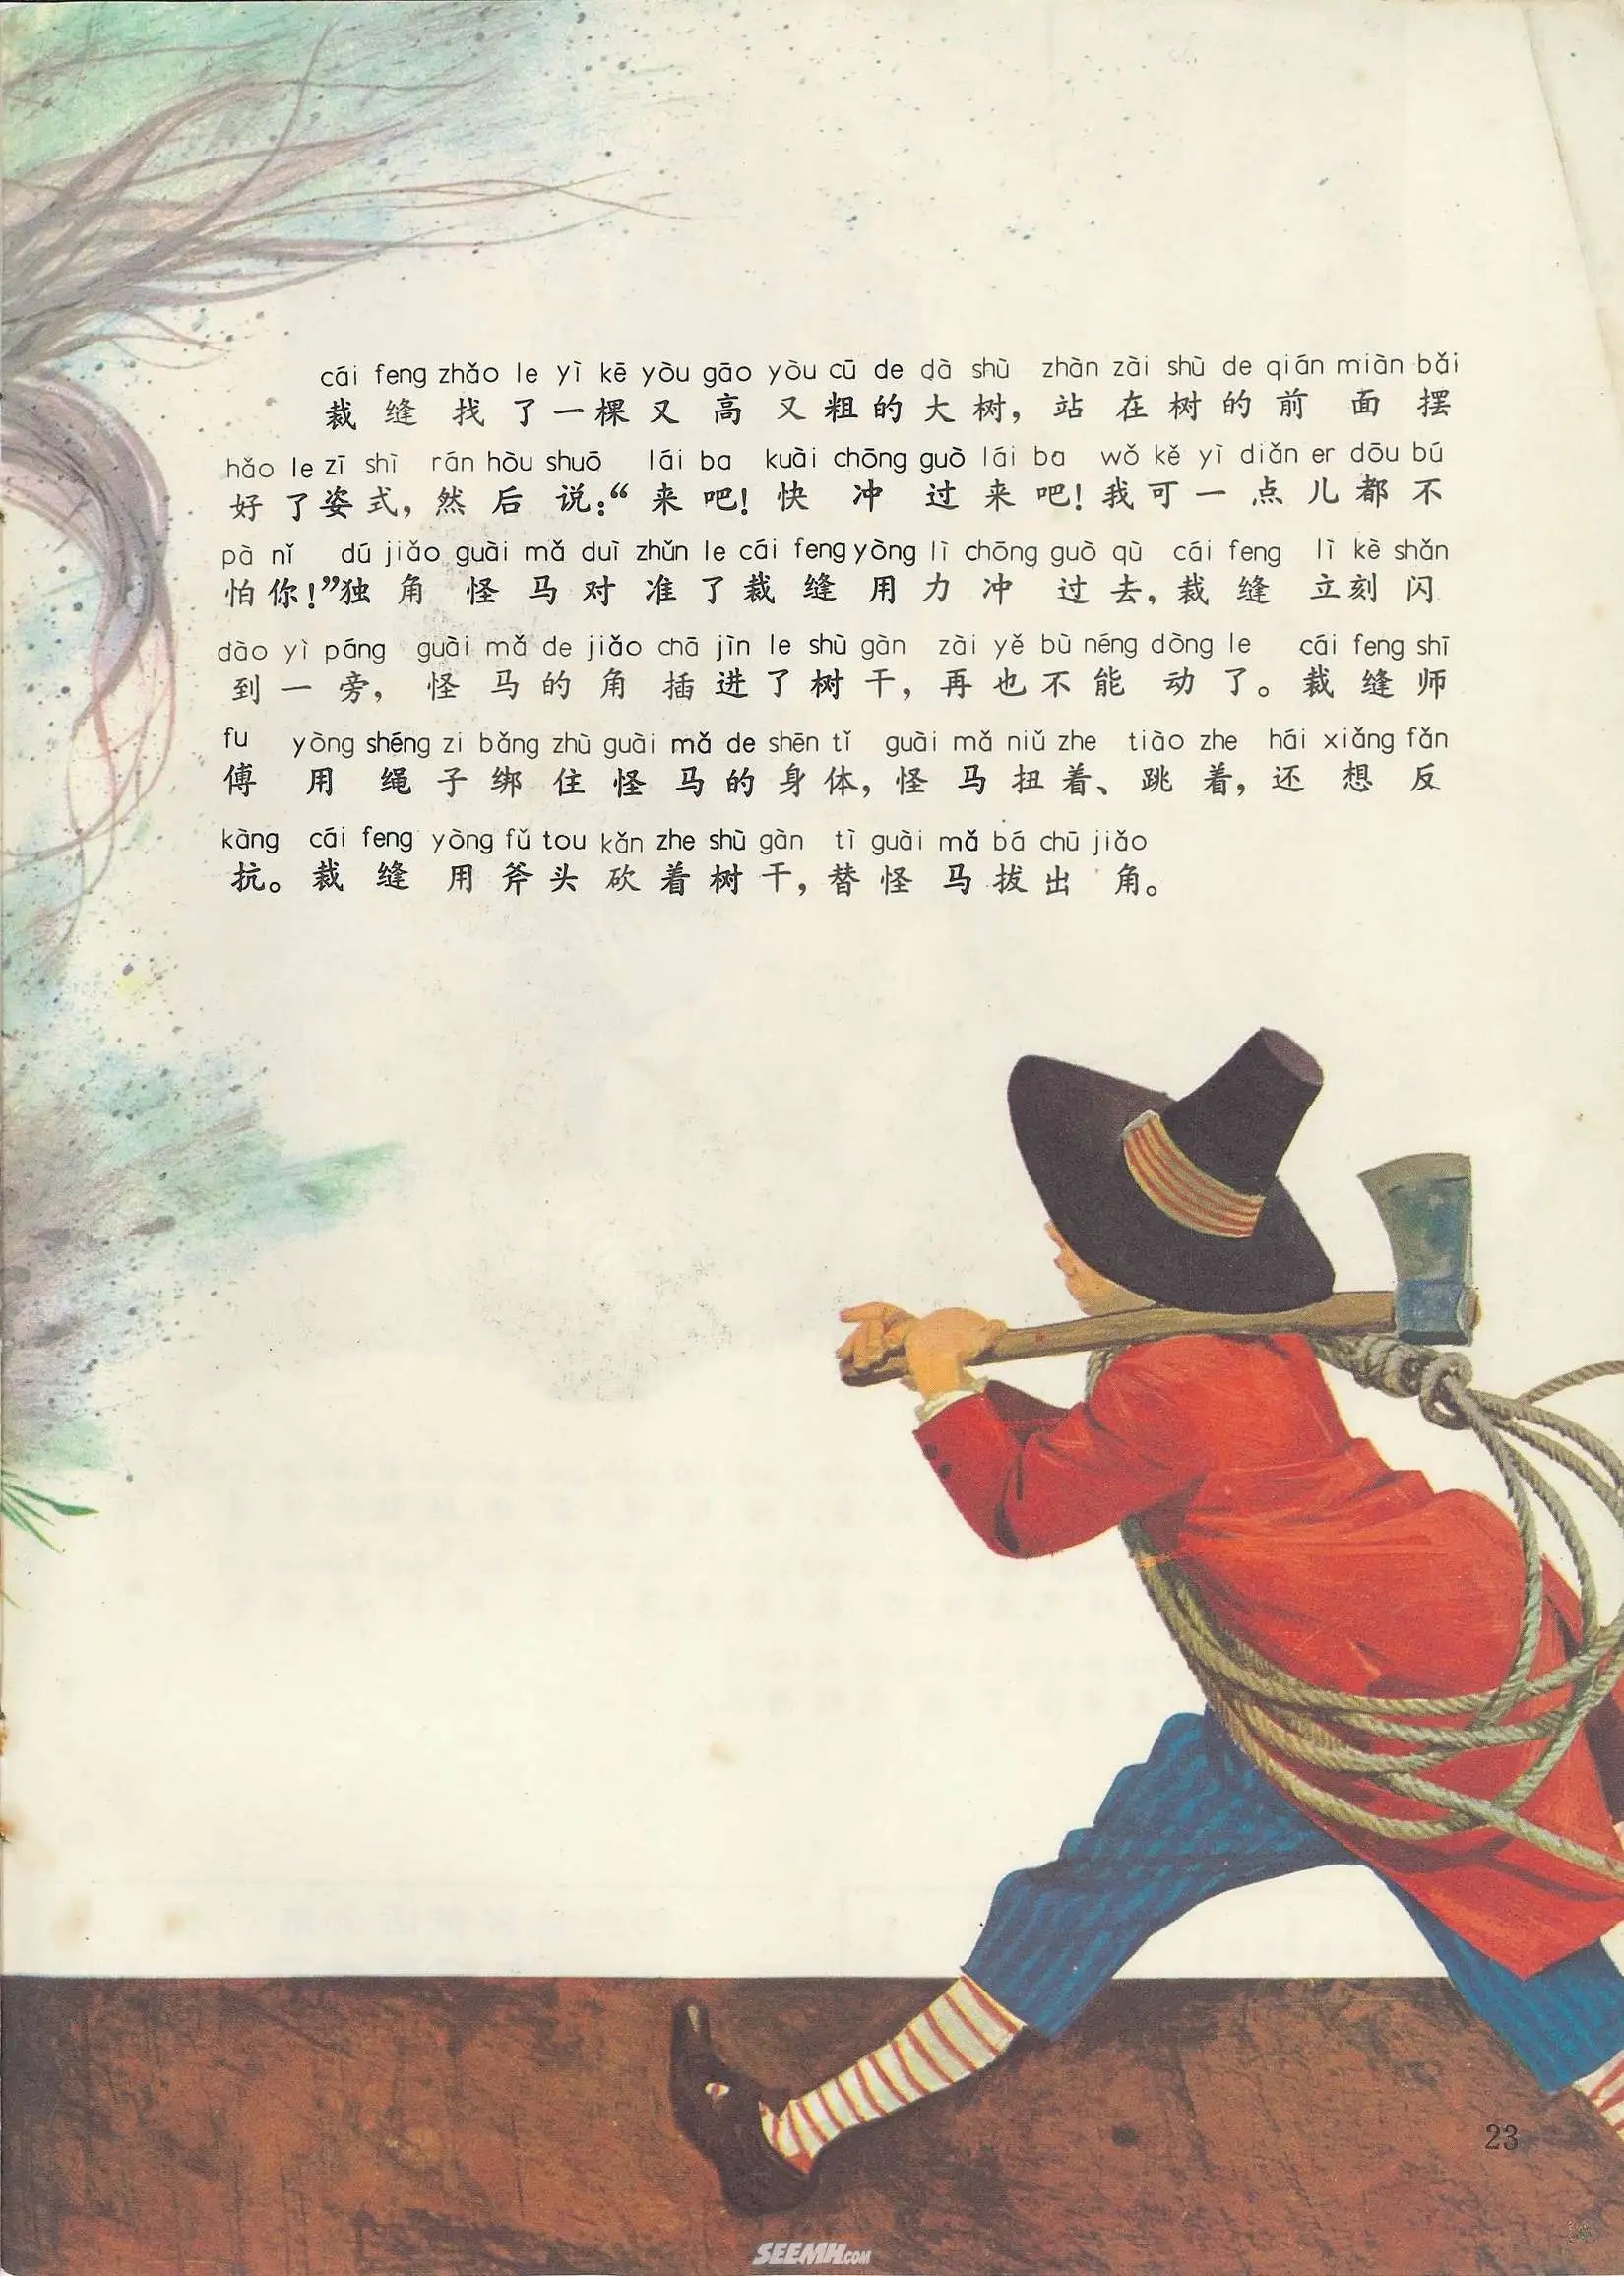 cái feng zhǎo le yì kē yòu gāo yòu cū de dà shù zhàn zài shù de qián miàn bǎi
裁缝找了一棵又高又粗的大树，站在树的前面摆
hǎo le zī shì rán hòu shuō lái ba kuài chōng guò lái ba wǒ kě yì diǎn er dōu bú
好了姿式，然后说：“来吧！快冲过来吧！我可一点儿都不
pà nǐ dú jiǎo guài mǎ duì zhǔn le cái feng yòng lì chōng guò qù cái feng lì kè shǎn
怕你！”独角怪马对准了裁缝用力冲过去，裁缝立刻闪
dào yì páng guài mǎ de jiǎo chā jìn le shù gàn zài yě bù néng dòng le cái feng shī
到一旁，怪马的角插进了树干，再也不能动了。裁缝师
fu yòng shéng zi bǎng zhù guài mǎ de shēn tǐ guài mǎ niǔ zhe tiào zhe hái xiǎng fǎn
傅用绳子绑住怪马的身体，怪马扭着、跳着，还想反
kàng cái feng yòng fǔ tou kǎn zhe shù gàn tì guài mǎ bá chū jiǎo
抗。裁缝用斧头砍着树干，替怪马拔出角。
23
SEEMH.COM